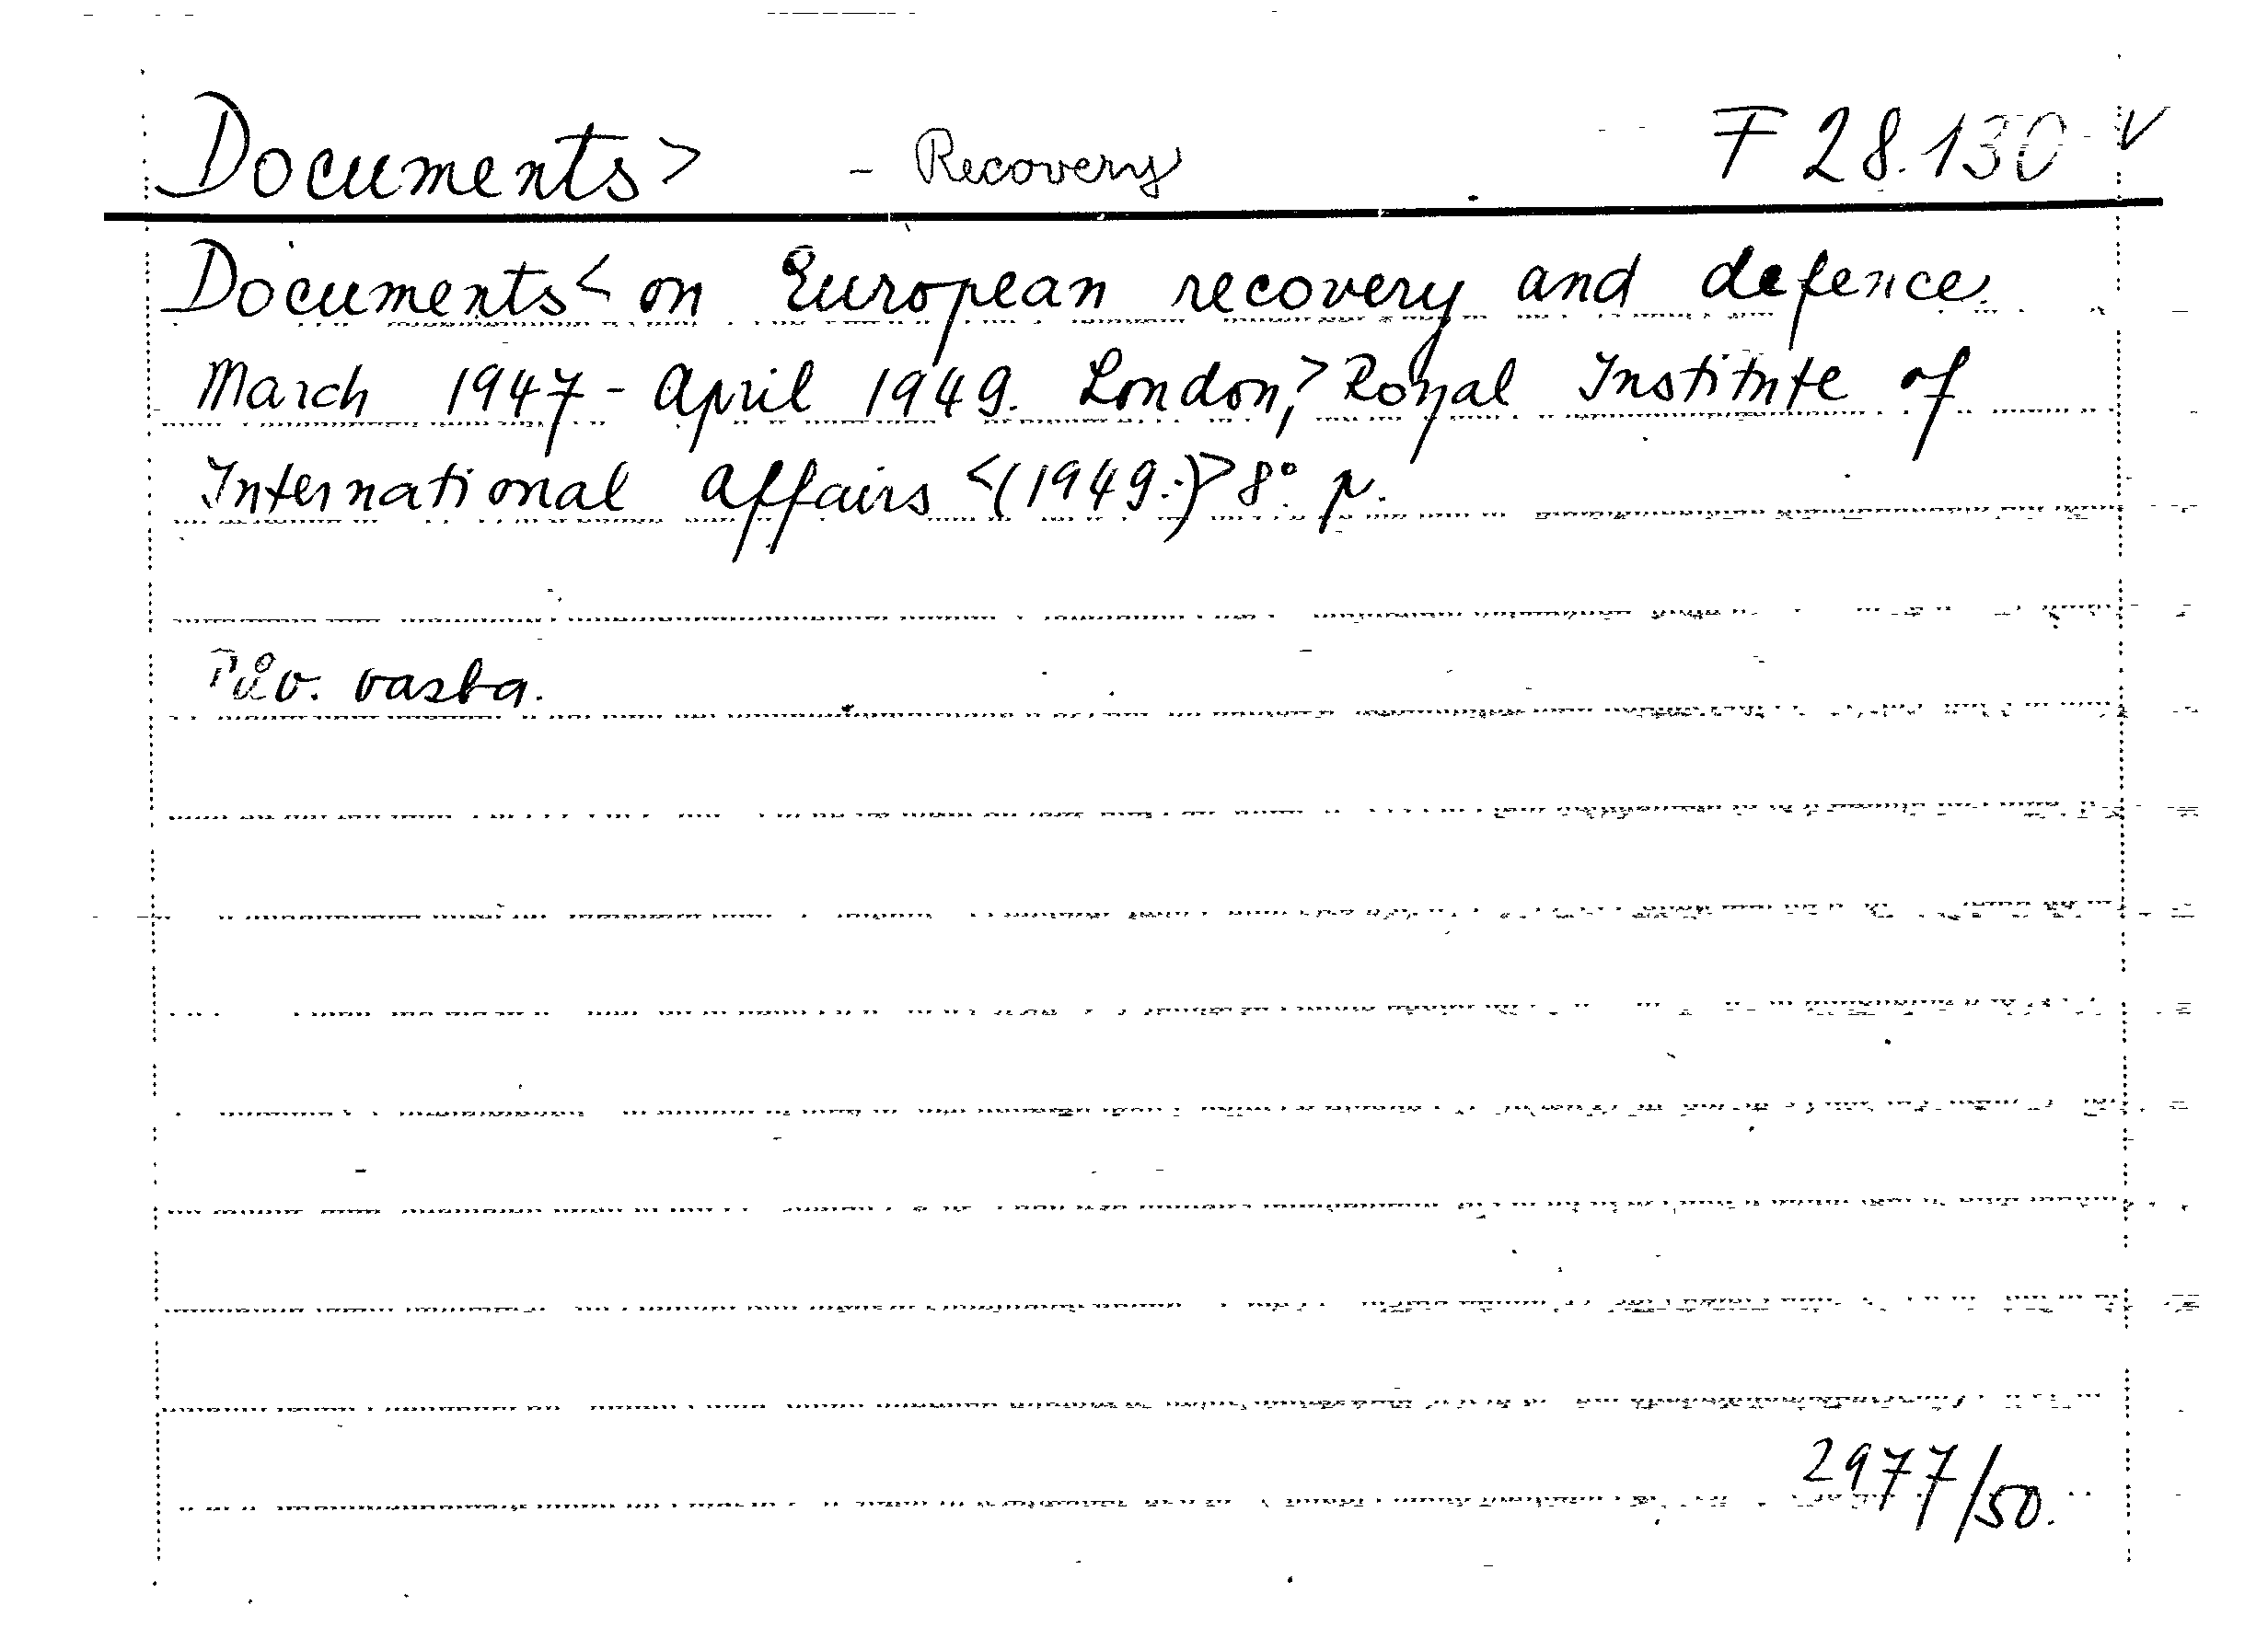 Documents> - Recovery F 28.130 v
Documents< on European recovery and defence.
March 1947 - April 1949. London,> Royal Institute of
International Affairs <(1949.)> 8° p.
Pův. vazba.
2977/50.